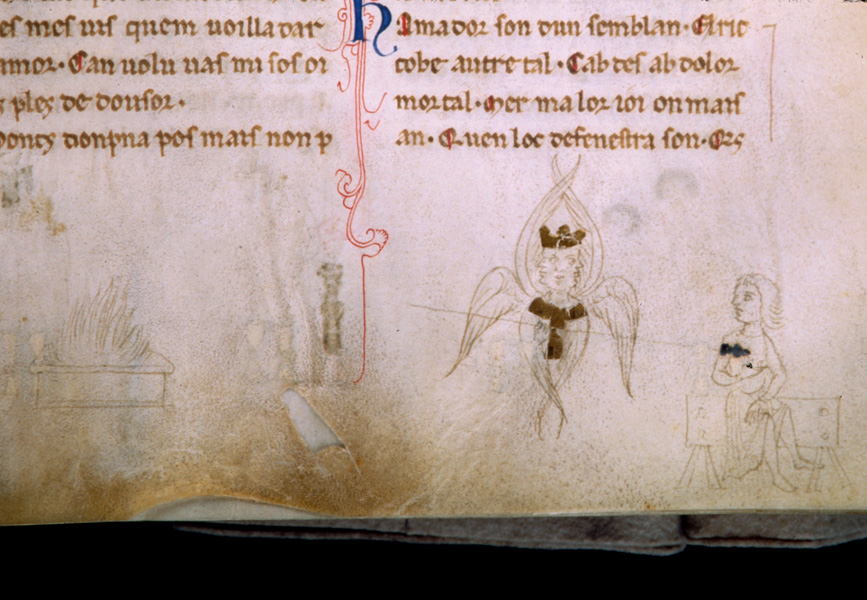 es mes uis quem uoilla dar
amor· Can uolu uas mi sos oi
s ples de dousor·
donpna pos mais non p
Amador son dun semblan· Eric
cobe autre tal· Cab des ab dolor
mortal· Mer ma lor ioi on mais
an· Quen loc defenestra son· Ers